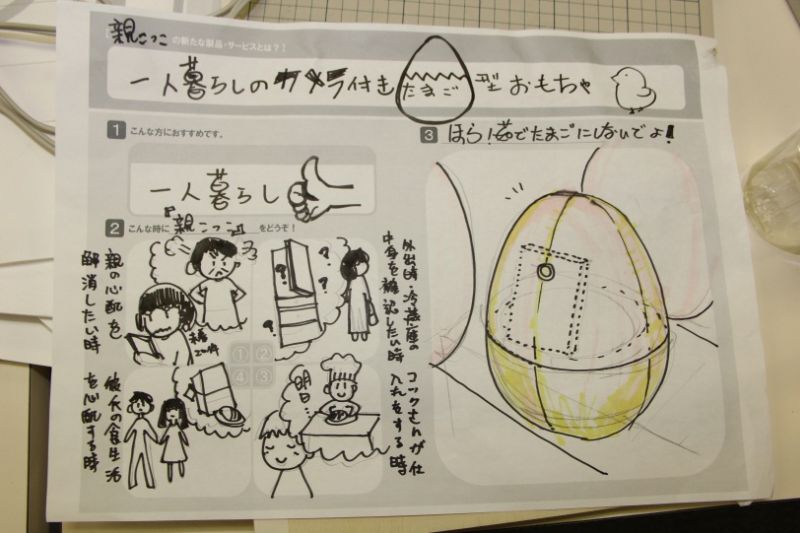 親こっこ の新たな製品・サービスとは?!
一人暮らしのカメラ付きたまご型おもちゃ
1 こんな方におすすめです。
一人暮らし
2 こんな時に『親こっこ』をどうぞ!
親の心配を
解消したい時
未読
20件
? ? ? ? ?
外出時・冷蔵庫の
中身を確認したい時
① ②
③ ④
彼氏の食生活
を心配する時
明日…
コックさんが仕
入れをする時
3 ほら!茹でたまごにしないでよ!